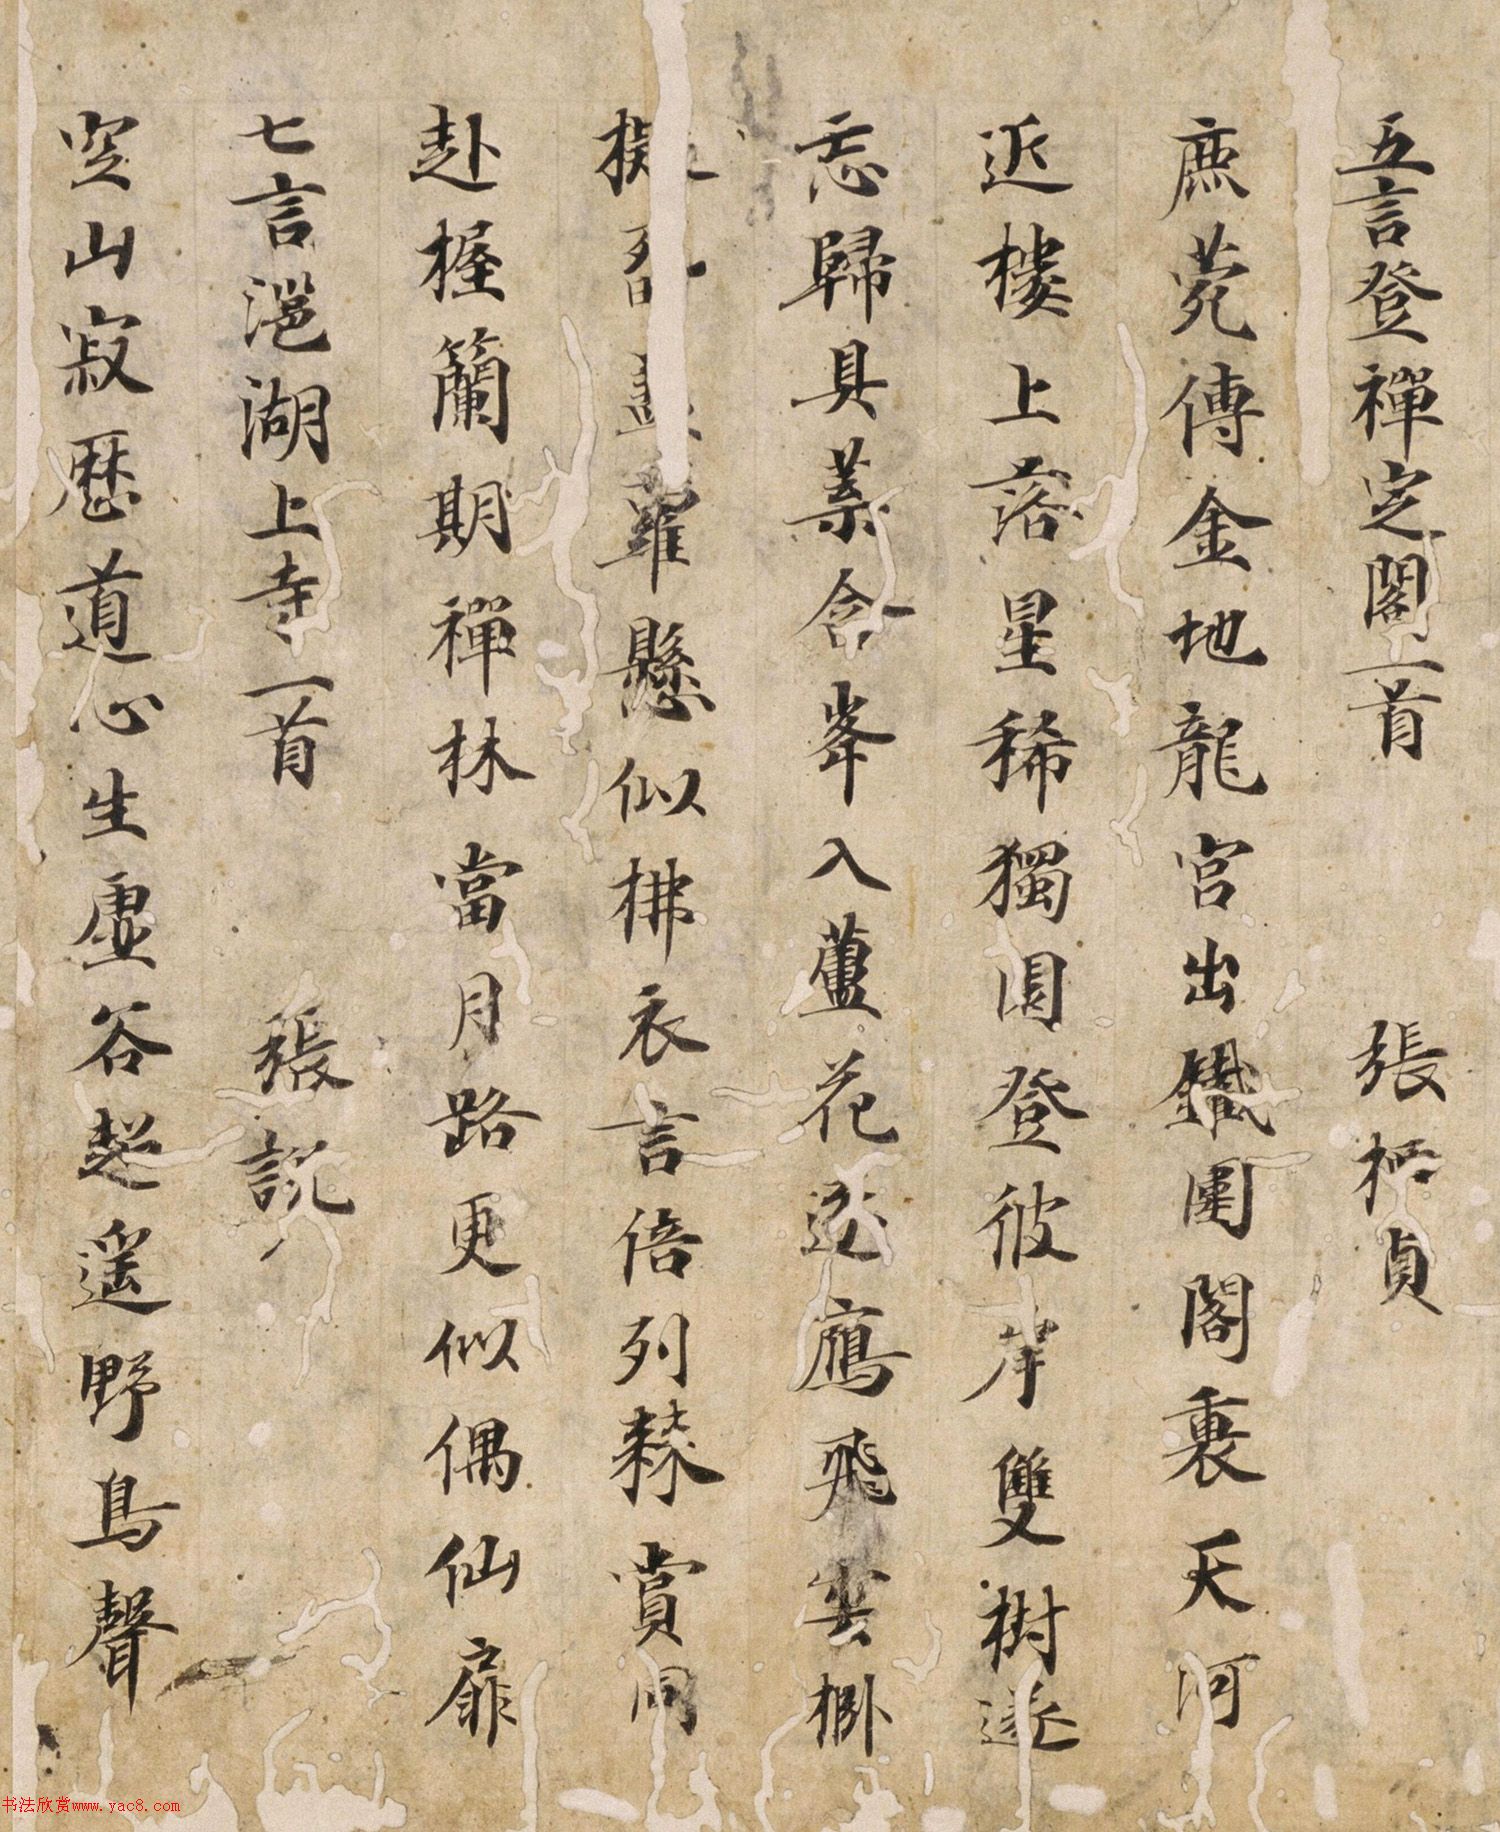 五言登禪定閣一首 張栖貞
庶菀傳金地龍宮出鐵圍閣裏天河
近樓上落星稀獨圓登彼岸雙樹遂
忘歸具葉含峯入蘆花逐鴈飛雲櫛
羅懸似拂衣言倍列棘賞同
赴握蘭期禪林當月路更似偶仙扉
七言灉湖上寺一首 張說
空山寂歷道心生虛谷超遥野鳥聲
书法欣赏www.yac8.com